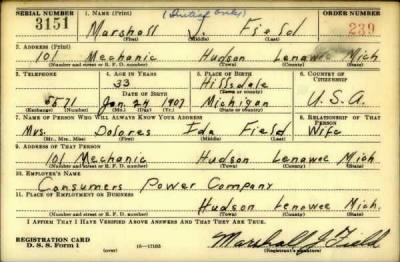 SERIAL NUMBER 1. NAME (Print) (Initial only) ORDER NUMBER
3151 Marshall J. Field 239
(First) (Middle) (Last)
2. ADDRESS (Print)
101 Mechanic Hudson Lenawee Mich
(Number and street or R. F. D. number) (Town) (County) (State)
3. TELEPHONE 4. AGE IN YEARS 5. PLACE OF BIRTH 6. COUNTRY OF CITIZENSHIP
33 Hillsdale
DATE OF BIRTH (Town or county)
5671 Jan. 24 1907 Michigan U.S.A.
(Exchange) (Number) (Mo.) (Day) (Yr.) (State or country)
7. NAME OF PERSON WHO WILL ALWAYS KNOW YOUR ADDRESS 8. RELATIONSHIP OF THAT PERSON
Mrs. Dolores Ida Field Wife
(Mr., Mrs., Miss) (First) (Middle) (Last)
9. ADDRESS OF THAT PERSON
101 Mechanic Hudson Lenawee Mich
(Number and street or R. F. D. number) (Town) (County) (State)
10. EMPLOYER'S NAME
Consumers Power Company
11. PLACE OF EMPLOYMENT OR BUSINESS
Hudson Lenawee Mich.
(Number and street or R. F. D. number) (Town) (County) (State)
I AFFIRM THAT I HAVE VERIFIED ABOVE ANSWERS AND THAT THEY ARE TRUE.
REGISTRATION CARD
D. S. S. Form 1 Marshall J Field
(over) (Registrant's signature)